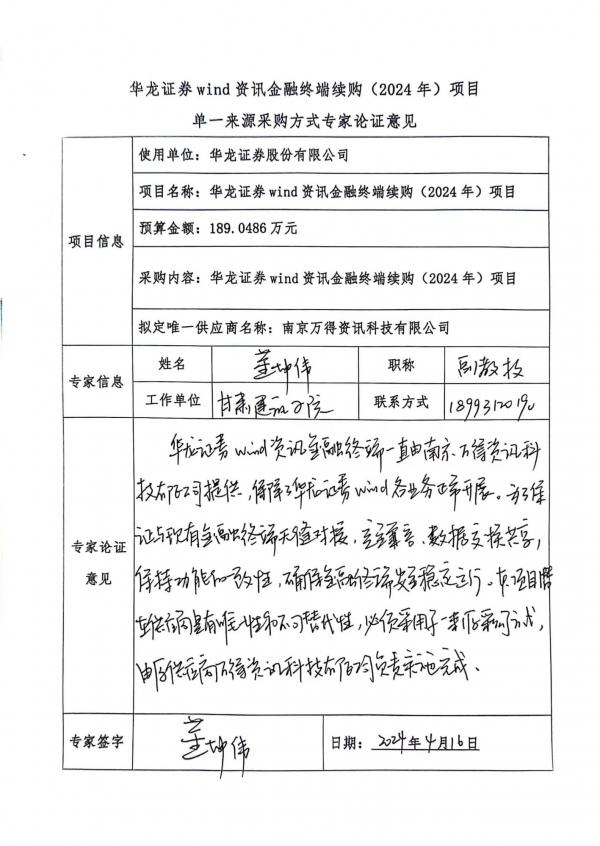 华龙证券 wind 资讯金融终端续购（2024 年）项目
单一来源采购方式专家论证意见
项目信息
使用单位：华龙证券股份有限公司
项目名称：华龙证券 wind 资讯金融终端续购（2024 年）项目
预算金额：189.0486 万元
采购内容：华龙证券 wind 资讯金融终端续购（2024 年）项目
拟定唯一供应商名称：南京万得资讯科技有限公司
专家信息
姓名 董坤伟 职称 副教授
工作单位 甘肃 学院 联系方式 18993120190
专家论证
意见
华龙证券wind资讯金融终端一直由南京万得资讯科
技有限公司提供，保障了华龙证券wind各业务正常开展。为了保
证与现有金融终端无缝对接，完全兼容、数据交换共享，
保持功能和一致性，确保金融终端安全稳定运行。本项目
供应商具有唯一性和不可替代性，必须采用单一来源采购方式，
由原供应商万得资讯科技有限公司负责实施完成。
专家签字 董坤伟 日期：2024年4月16日